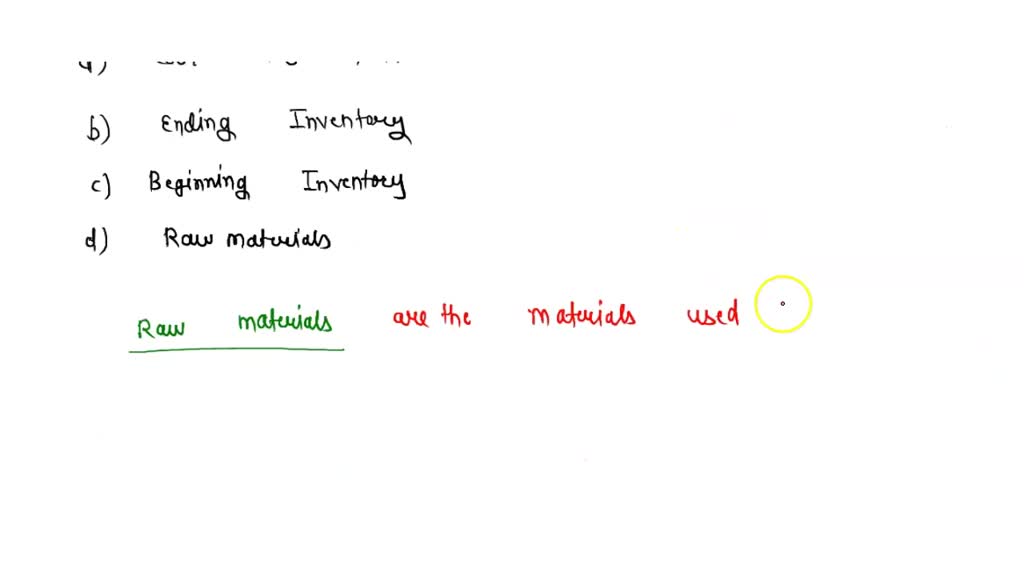 b) Ending Inventory
c) Beginning Inventory
d) Raw materials
Raw materials are the materials used